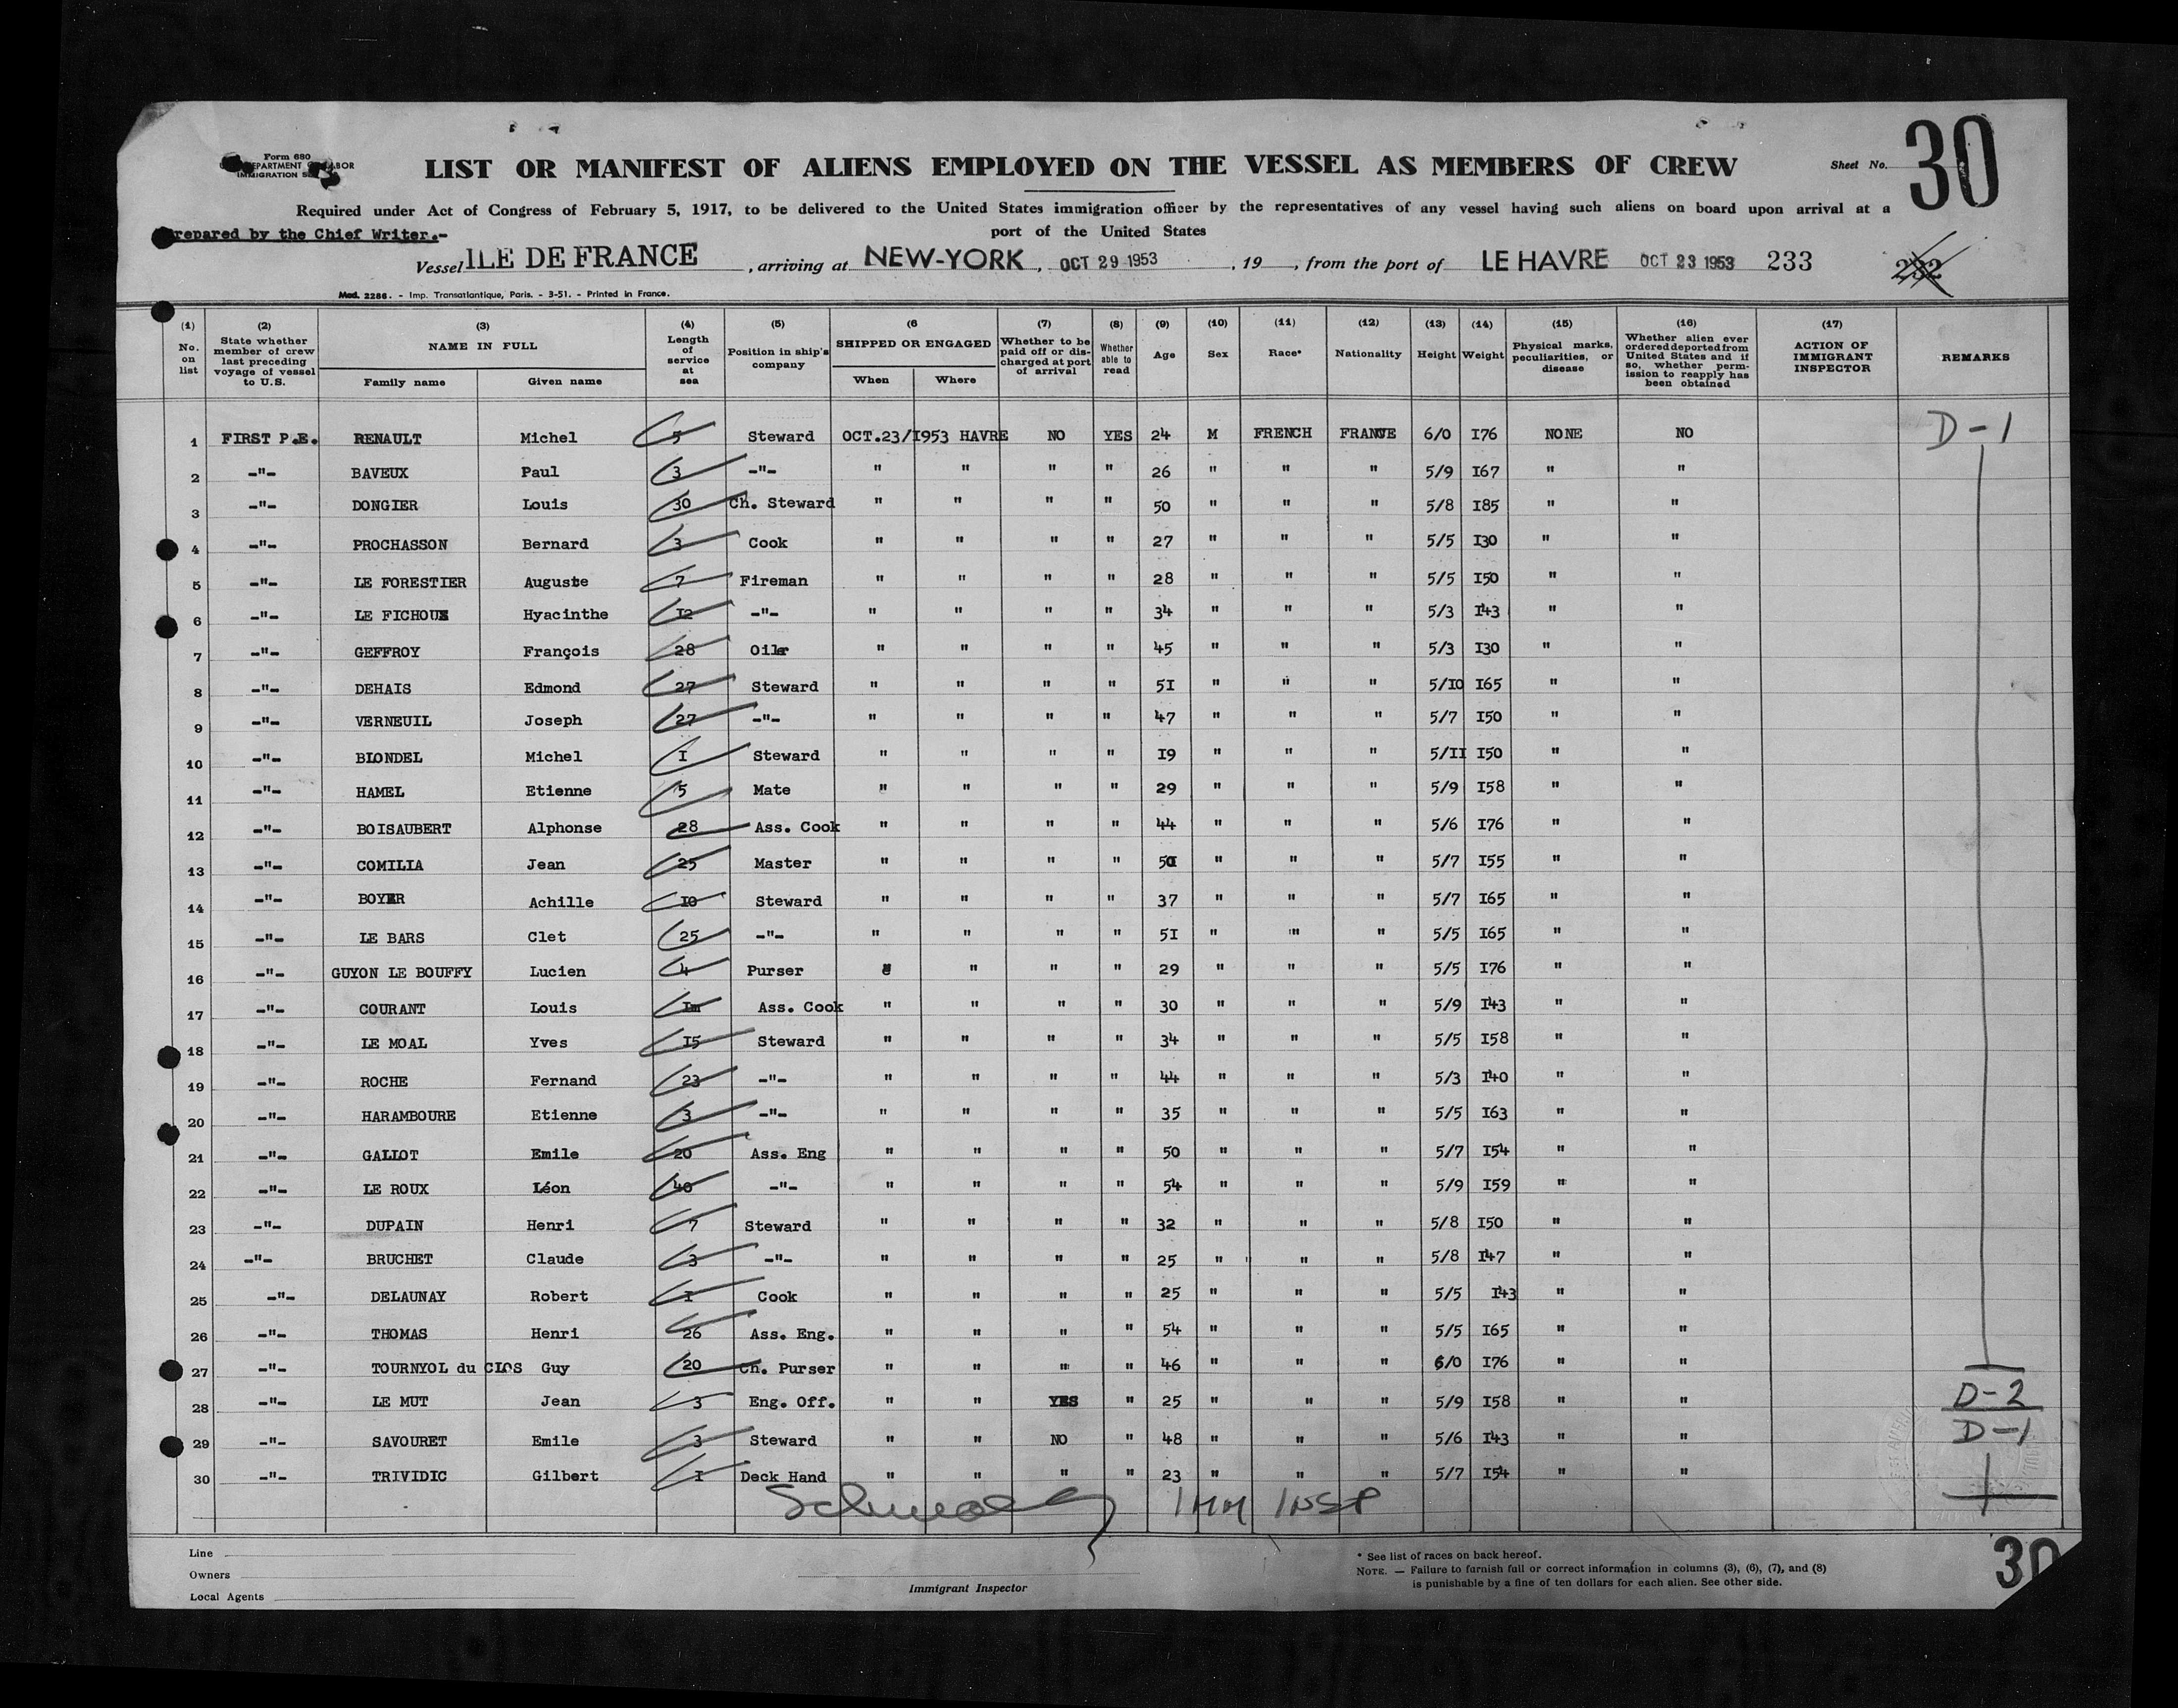 Form 680
LIST OR MANIFEST OF ALIENS EMPLOYED ON THE VESSEL AS MEMBERS OF CREW
Sheet No. 30
Required under Act of Congress of February 5, 1917, to be delivered to the United States immigration officer by the representatives of any vessel having such aliens on board upon arrival at a
port of the United States
Prepared by the Chief Writer.-
Vessel ILE DE FRANCE, arriving at NEW-YORK, OCT 29 1953, 19, from the port of LE HAVRE OCT 23 1953 233 232
Mod. 2286. - Imp. Transatlantique, Paris. - 3-51. - Printed in France.
(1) No. on list (2) State whether member of crew last preceding voyage of vessel to U.S. (3) NAME IN FULL Family name Given name (4) Length of service at sea (5) Position in ship's company (6 SHIPPED OR ENGAGED When Where (7) Whether to be paid off or discharged at port of arrival (8) Whether able to read (9) Age (10) Sex (11) Race* (12) Nationality (13) Height (14) Weight (15) Physical marks, peculiarities, or disease (16) Whether alien ever ordered deported from United States and if so, whether permission to reapply has been obtained (17) ACTION OF IMMIGRANT INSPECTOR REMARKS
1 FIRST P.E. RENAULT Michel 5 Steward OCT.23/1953 HAVRE NO YES 24 M FRENCH FRANCE 6/0 I76 NONE NO D-1
2 -"- BAVEUX Paul 3 -"- " " " " 26 " " " 5/9 I67 " "
3 -"- DONGIER Louis 30 Ch. Steward " " " " 50 " " " 5/8 I85 " "
4 -"- PROCHASSON Bernard 3 Cook " " " " 27 " " " 5/5 I30 " "
5 -"- LE FORESTIER Auguste 7 Fireman " " " " 28 " " " 5/5 I50 " "
6 -"- LE FICHOUX Hyacinthe I2 -"- " " " " 34 " " " 5/3 I43 " "
7 -"- GEFFROY François 28 Oiler " " " " 45 " " " 5/3 I30 " "
8 -"- DEHAIS Edmond 27 Steward " " " " 5I " " " 5/I0 I65 " "
9 -"- VERNEUIL Joseph 27 -"- " " " " 47 " " " 5/7 I50 " "
10 -"- BLONDEL Michel I Steward " " " " I9 " " " 5/II I50 " "
11 -"- HAMEL Etienne 5 Mate " " " " 29 " " " 5/9 I58 " "
12 -"- BOISAUBERT Alphonse 28 Ass. Cook " " " " 44 " " " 5/6 I76 " "
13 -"- COMILIA Jean 25 Master " " " " " " " 5/7 I55 " "
14 -"- BOYER Achille I0 Steward " " " " 37 " " " 5/7 I65 " "
15 -"- LE BARS Clet 25 -"- " " " " 5I " " " 5/5 I65 " "
16 -"- GUYON LE BOUFFY Lucien 4 Purser " " " " 29 " " " 5/5 I76 " "
17 -"- COURANT Louis Im Ass. Cook " " " " 30 " " " 5/9 I43 " "
18 -"- LE MOAL Yves I5 Steward " " " " 34 " " " 5/5 I58 " "
19 -"- ROCHE Fernand 23 -"- " " " " 44 " " " 5/3 I40 " "
20 -"- HARAMBOURE Etienne 3 -"- " " " " 35 " " " 5/5 I63 " "
21 -"- GALLOT Emile 20 Ass. Eng " " " " 50 " " " 5/7 I54 " "
22 -"- LE ROUX Léon 40 -"- " " " " 54 " " " 5/9 I59 " "
23 -"- DUPAIN Henri 7 Steward " " " " 32 " " " 5/8 I50 " "
24 -"- BRUCHET Claude 3 -"- " " " " 25 " " " 5/8 I47 " "
25 -"- DELAUNAY Robert I Cook " " " " 25 " " " 5/5 I43 " "
26 -"- THOMAS Henri 26 Ass. Eng. " " " " 54 " " " 5/5 I65 " "
27 -"- TOURNYOL du CLOS Guy 20 Ch. Purser " " " " 46 " " " 6/0 I76 " "
28 -"- LE MUT Jean 3 Eng. Off. " " YES " 25 " " " 5/9 I58 " " D-2
29 -"- SAVOURET Emile 3 Steward " " NO " 48 " " " 5/6 I43 " " D-1
30 -"- TRIVIDIC Gilbert I Deck Hand " " " " 23 " " " 5/7 I54 " "
IMM INSP
Line
Owners
Local Agents
Immigrant Inspector
* See list of races on back hereof.
NOTE. — Failure to furnish full or correct information in columns (3), (6), (7), and (8)
is punishable by a fine of ten dollars for each alien. See other side.
30